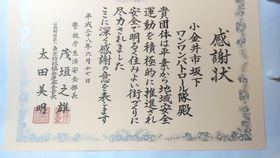 感謝状
小金井市坂下
ワンワンパトロール隊殿
貴団体は平素から地域安全
運動を積極的に推進され
安全で明るく住みよい街づくりに
尽力されました
ここに深く感謝の意を表します
平成二十八年六月十七日
警視庁生活安全部長
茂垣之雄
太田美明